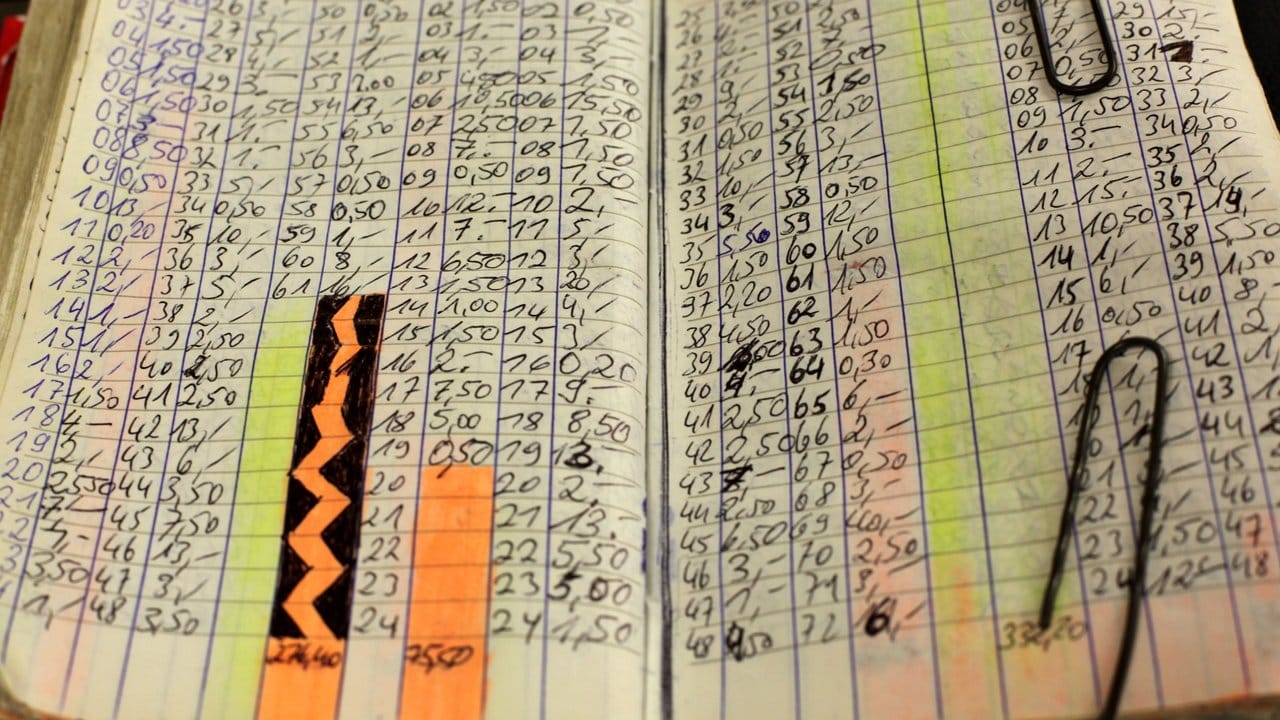 26 3,- 50 0,50 02 1,50 02 0,50
03 4.- 27 5,- 51 2,- 03 1.- 03 1,-
04 1,50 28 4,- 52 1,- 04 3,- 04 3,-
05 1,50 29 3.- 53 2.00 05 4,50 05 1,50
06 1,50 30 1,50 54 13,- 06 10,50 06 15,50
07 3.- 31 1.- 55 6,50 07 2,50 07 1,50
08 8,50 32 1.- 56 3,- 08 7.- 08 1,50
09 0,50 33 5,- 57 0,50 09 0,50 09 1,50
10 13,- 34 0,50 58 0,50 10 12.- 10 2,-
11 0,20 35 10,- 59 1,- 11 7.- 11 5,-
12 2,- 36 3,- 60 8,- 12 6,50 12 3,-
13 2,- 37 5,- 61 16,- 13 1,50 13 20,-
14 1,- 38 2,- 14 1,00 14 4,-
15 1,- 39 2,50 15 1,50 15 3,-
16 2,- 40 2,50 16 2.- 16 0,20
17 1,50 41 2,50 17 7,50 17 9.-
18 4- 42 13,- 18 5,00 18 8,50
19 2,- 43 6,- 19 0,50 19 13.
20 2,50 44 3,50 20 20 2.-
21 7- 45 7,50 21 21 13.-
22 1,- 46 13,- 22 22 5,50
3,50 47 3,- 23 23 5,00
1,- 48 3,50 24 24 1,50
276,40 75,50
25 49 05 7,- 29 15,-
26 4,- 50 06 2,- 30 2.-
27 2.- 51 2,50 07 0,50 31
28 1.- 52 0,50 08 32 3,-
29 9,- 53 0,50 09 1,50 33 2,-
30 2,- 54 1,50 10 3.- 34 0,50
31 0,50 55 2,50 11 2.- 35
32 1,50 56 3,- 12 15.- 36 2,-
33 10,- 57 13,- 13 10,50 37 19,-
34 3,- 58 0,50 14 1,- 38 5,50
35 5,50 59 12,- 15 6,- 39 1,50
36 1,50 60 1,50 16 0,50 40 8,-
37 2,20 61 1,50 17 41 2,
38 4,50 62 1,- 42
39 63 1,50 43
40 64 0,30 44
41 2,50 65 6,- 45
42 2,50 66 2,- 22 46
43 67 0,50 23 1,50 47
44 2,50 68 3,- 24 12.- 48
45 6,50 69 40,-
46 3,- 70 2,50
47 1,- 71 3,-
48 4,50 72 6,-
332,20